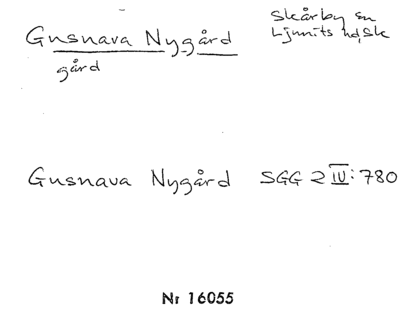 Gusnava Nygård
gård
Skårby sn
Ljunits hd, Sk
Gusnava Nygård SGG 2 IV: 780
Nr 16055